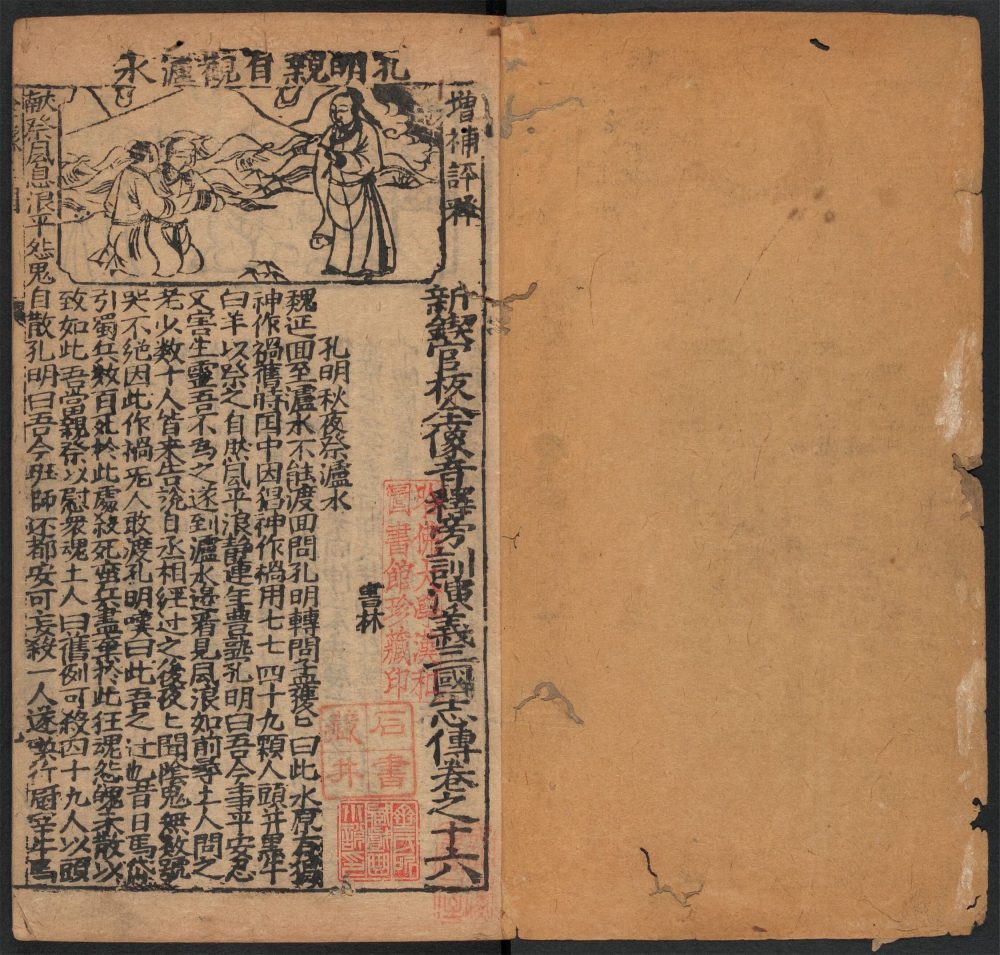 孔明親自觀瀘水
增補評釋
新鍥官板全像音釋旁訓演義三國志傳卷之十六
書林
孔明秋夜祭瀘水
魏延回至瀘水不能渡回問孔明轉問孟獲〻曰此水原有猖
神作禍舊時国中因猖神作禍用七七四十九顆人頭并黑牛
白羊以祭之自然風平浪静連年豊熟孔明曰吾今事平安忍
又害生靈吾不為之遂到瀘水邊看見風浪如前尋土人問之
老少数十人皆来告說自丞相經过之後夜〻聞陰鬼無数號
哭不絕因此作禍无人敢渡孔明嘆曰此吾之过也昔日馬岱
引蜀兵数百死於此處殺死蛮兵盡棄於此狂魂怨鬼未散以
致如此吾當親祭以慰衆魂土人曰舊例可殺四十九人以頭
献祭風息浪平怨鬼自散孔明曰吾今班師还都安可妄殺一人遂喚行厨宰牛馬
哈佛大學漢和
圖書館珍藏印